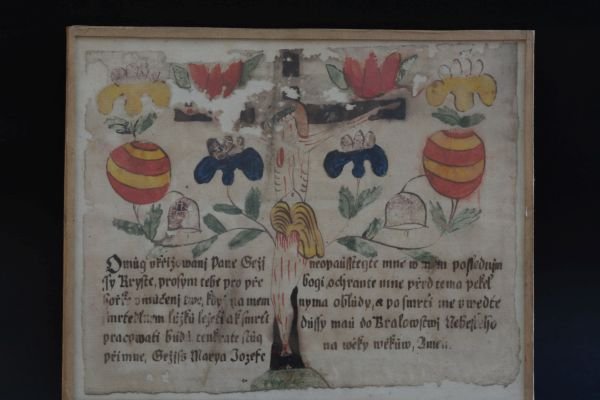 O můg vkřižowanj Pane Gežj
ssy Kryste, prosym tebe pro pře
hořké omůčenj twe, když na mem
smrtedlnem lůžku ležeti a k smrti
pracowati budu, tenkrate stůg
při mne, Gežjss Marya Jozefe
neopausstegte mne w mem poslednjm
bogi, ochrante mne před tema pekel
nyma obludy, a po smrti me vwedte
dussy mau do Kralowstwj Nebeskeho
na wěky wěkůw, Amen.